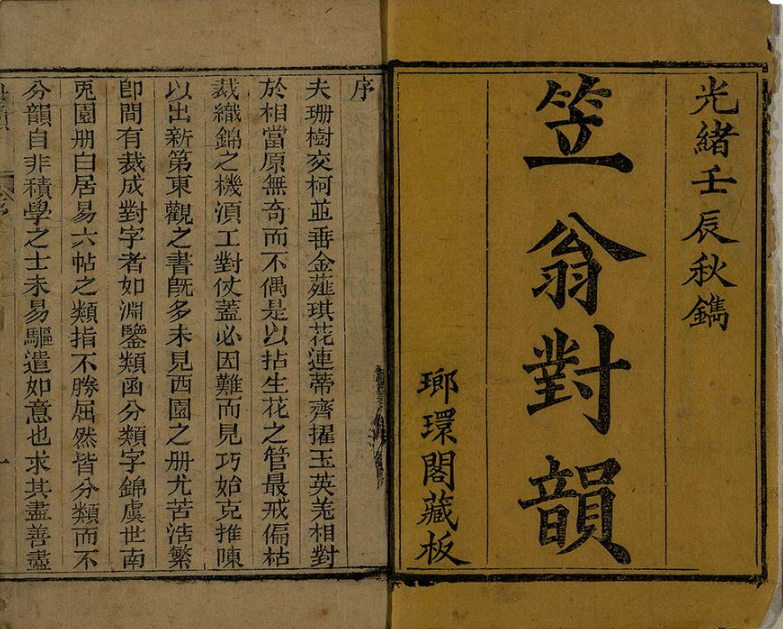 光緒壬辰秋鐫
笠翁對韻
瑯環閣藏板
序
夫珊樹交柯並垂金薤琪花連蒂齊擢玉英羌相對
於相當原無奇而不偶是以拈生花之管最戒偏枯
裁織錦之機湏工對仗蓋必因難而見巧始克推陳
以出新第東觀之書旣多未見西園之册尤苦浩繁
卽間有裁成對字者如淵鑒類函分類字錦虞世南
兎園册白居易六帖之類指不勝屈然皆分類而不
分韻自非積學之士未易驅遣如意也求其盡善盡